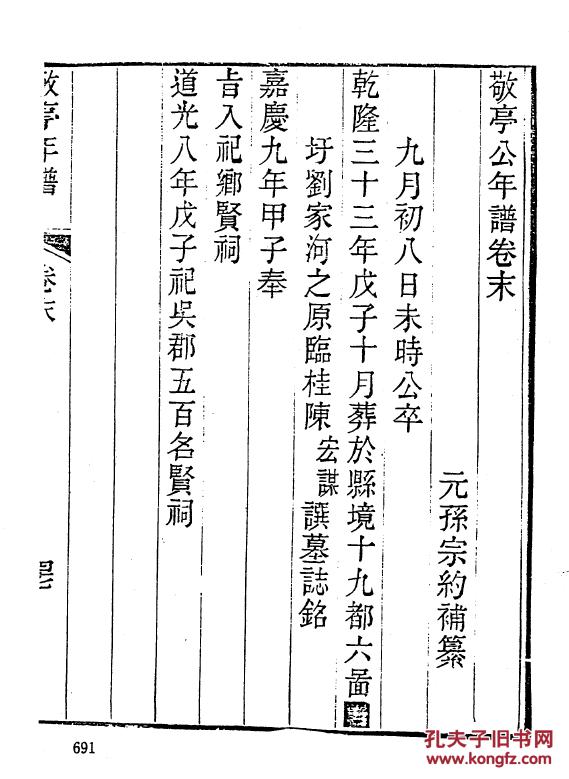 敬亭公年譜卷末
元孫宗約補纂
九月初八日未時公卒
乾隆三十三年戊子十月葬於縣境十九都六啚
圩劉家河之原臨桂陳宏謀譔墓誌銘
嘉慶九年甲子奉
旨入祀鄉賢祠
道光八年戊子祀吳郡五百名賢祠
敬亭年譜
卷末
691
孔夫子旧书网
www.kongfz.com